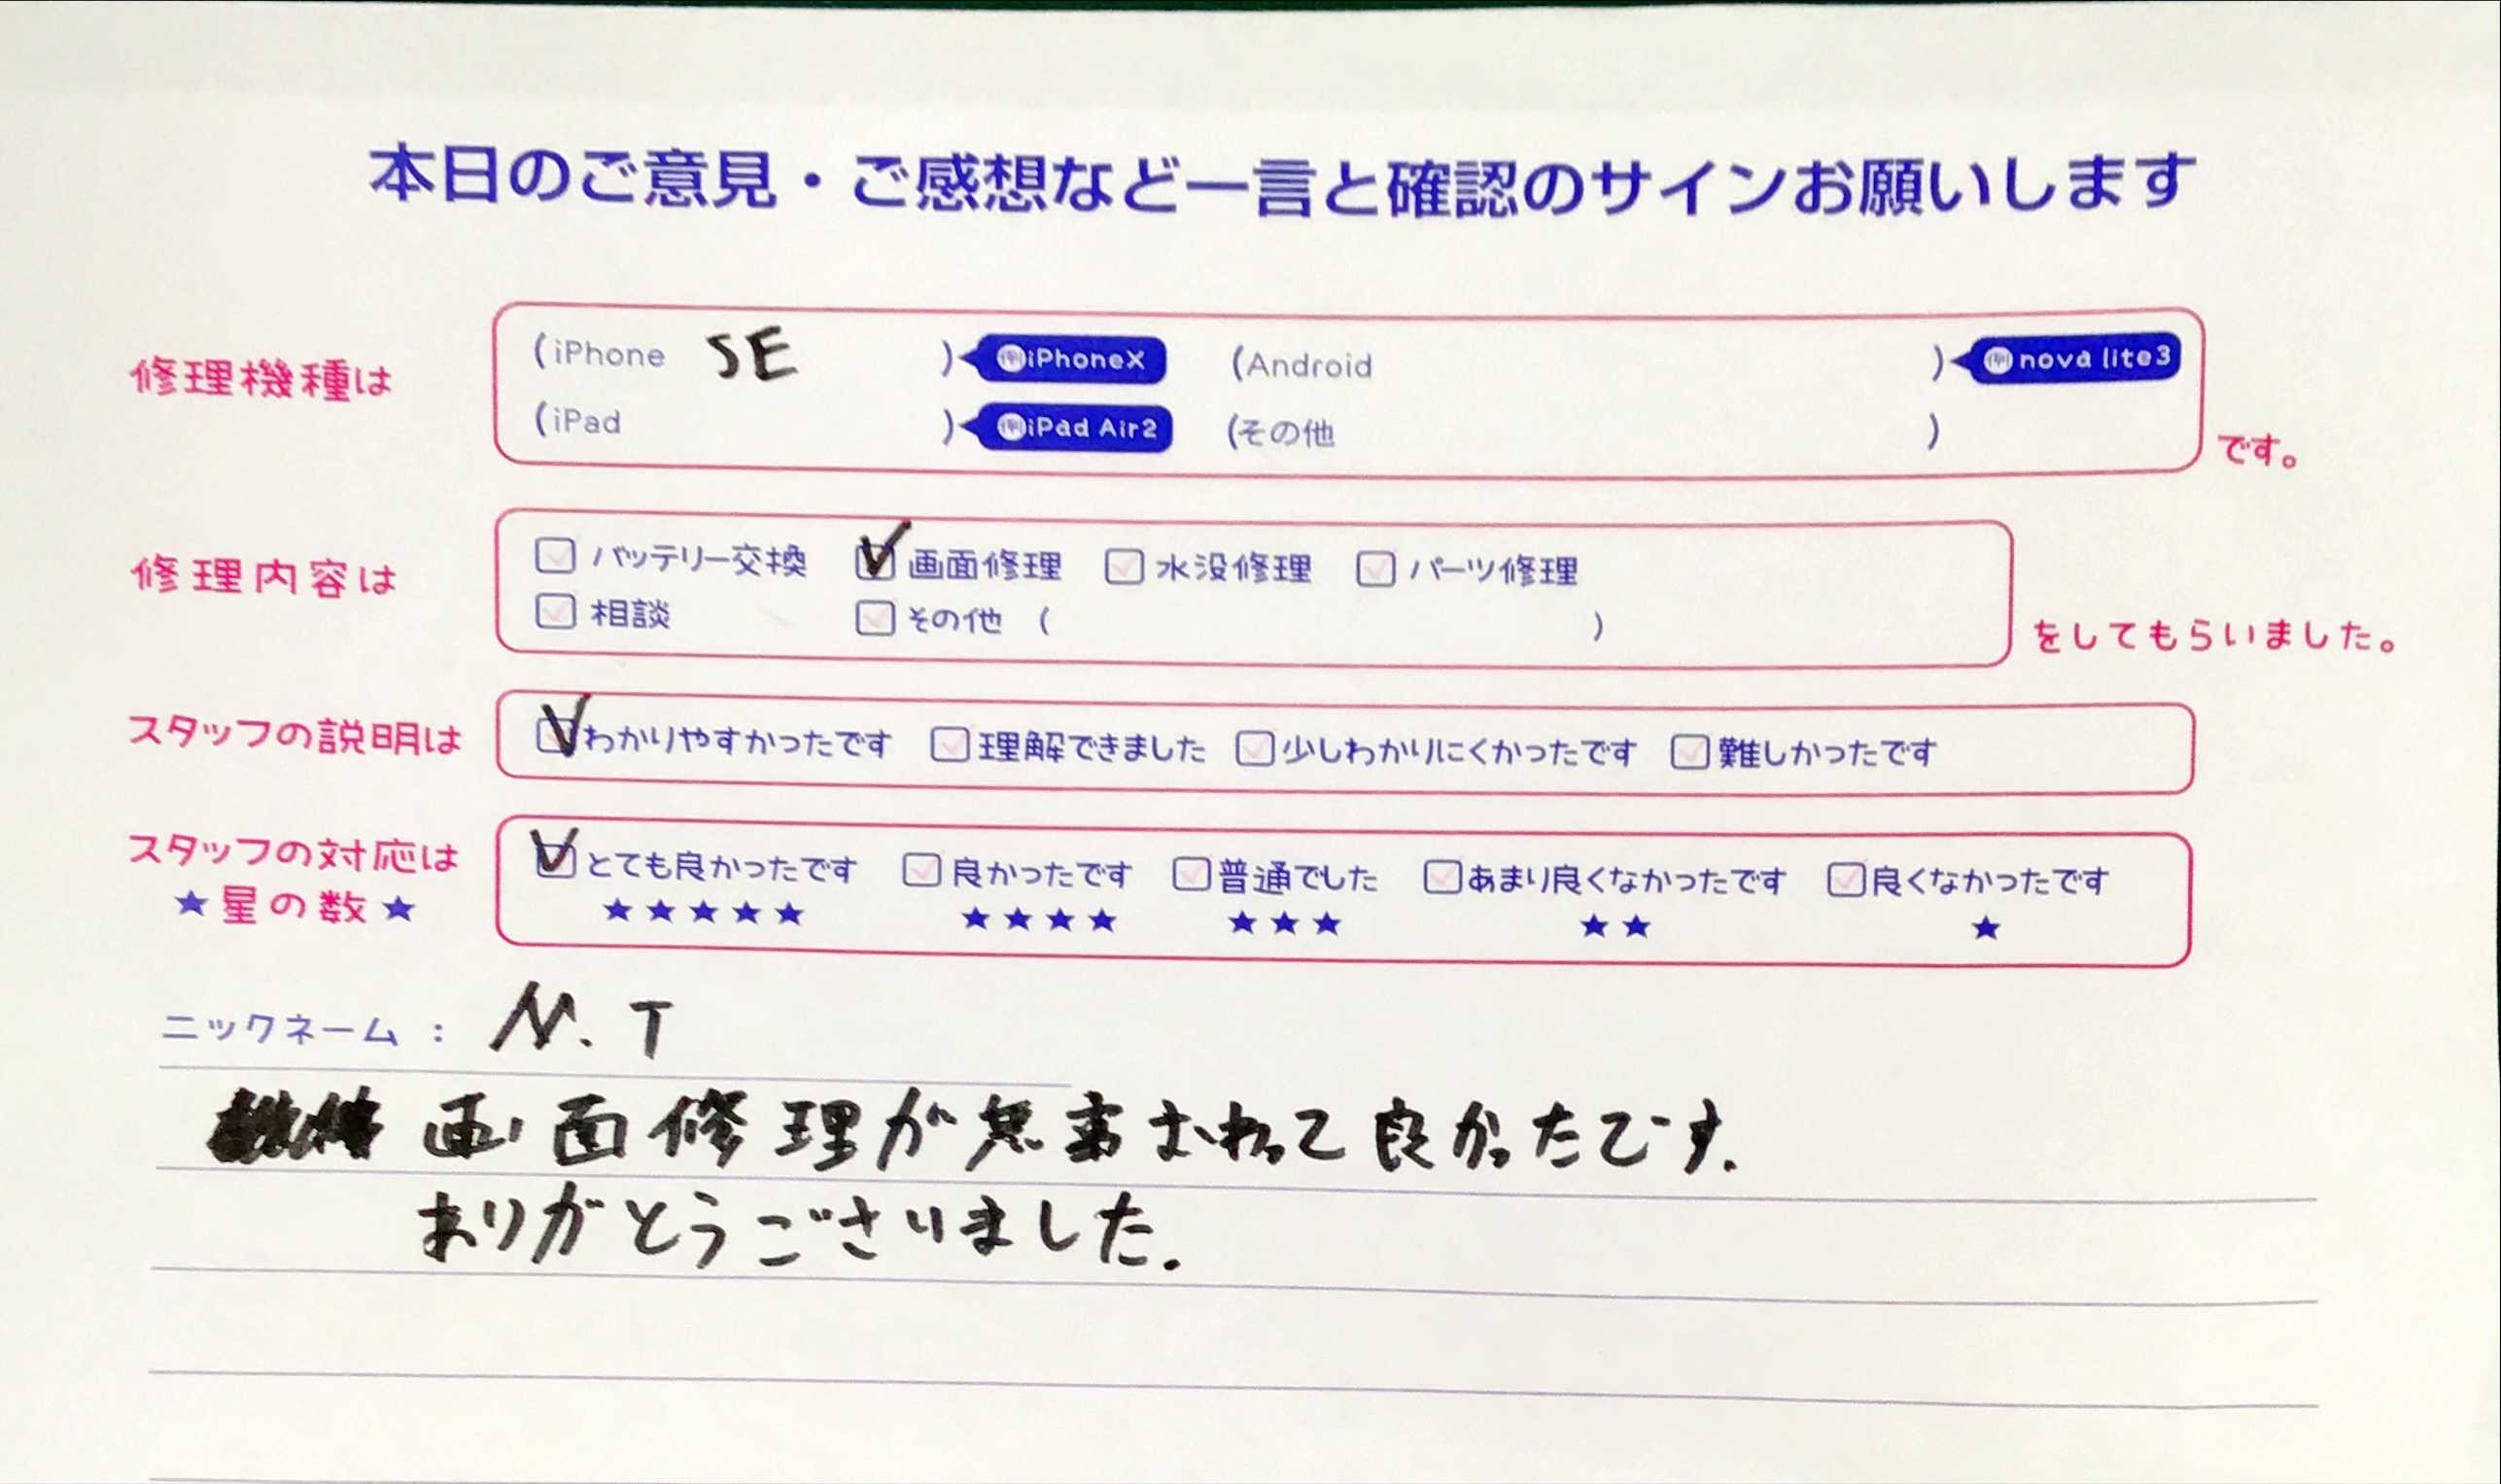 本日のご意見・ご感想など一言と確認のサインお願いします
修理機種は (iPhone SE ) 例iPhoneX (Android ) 例nova lite3
(iPad ) 例iPad Air2 (その他 ) です。
修理内容は バッテリー交換 画面修理 水没修理 パーツ修理
相談 その他 ( ) をしてもらいました。
スタッフの説明は わかりやすかったです 理解できました 少しわかりにくかったです 難しかったです
スタッフの対応は とても良かったです 良かったです 普通でした あまり良くなかったです 良くなかったです
★星の数★ ★★★★★ ★★★★ ★★★ ★★ ★
ニックネーム : N.T
画面修理が無事おわって良かったです.
ありがとうございました.